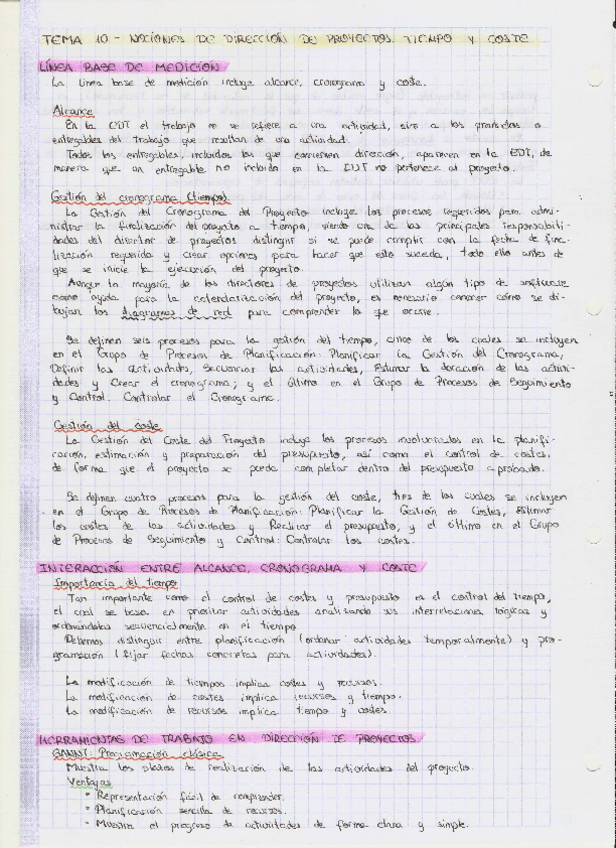 TEMA 10 - NOCIONES DE DIRECCIÓN DE PROYECTOS. TIEMPO Y COSTE
LÍNEA BASE DE MEDICIÓN
La línea base de medición incluye alcance, cronograma y coste.
Alcance
En la EDT el trabajo no se refiere a una actividad, sino a los productos o
entregables del trabajo que resultan de una actividad.
Todos los entregables, incluidos los que conciernen dirección, aparecen en la EDT, de
manera que un entregable no incluido en la EDT no pertenece al proyecto.
Gestión del cronograma (tiempo)
La Gestión del Cronograma del Proyecto incluye los procesos requeridos para admi-
nistrar la finalización del proyecto a tiempo, siendo una de las principales responsabili-
dades del director de proyectos distinguir si se puede cumplir con la fecha de fina-
lización requerida y crear opciones para hacer que esto suceda, todo ello antes de
que se inicie la ejecución del proyecto.
Aunque la mayoría de los directores de proyectos utilizan algún tipo de software
como ayuda para la calendarización del proyecto, es necesario conocer cómo se di-
bujan los diagramas de red para comprender lo que ocurre.
Se definen seis procesos para la gestión del tiempo, cinco de los cuales se incluyen
en el Grupo de Procesos de Planificación: Planificar la Gestión del Cronograma,
Definir las actividades, Secuenciar las actividades, Estimar la duración de las activi-
dades y Crear el cronograma; y el último en el Grupo de Procesos de Seguimiento
y Control: Controlar el Cronograma.
Gestión del coste
La Gestión del Coste del Proyecto incluye los procesos involucrados en la planifi-
cación, estimación y preparación del presupuesto, así como el control de costes,
de forma que el proyecto se pueda completar dentro del presupuesto aprobado.
Se definen cuatro procesos para la gestión del coste, tres de los cuales se incluyen
en el Grupo de Procesos de Planificación: Planificar la Gestión de Costes, Estimar
los costes de las actividades y Realizar el presupuesto, y el último en el Grupo
de Procesos de Seguimiento y Control: Controlar los costes.
INTERACCIÓN ENTRE ALCANCE, CRONOGRAMA Y COSTE
Importancia del tiempo
Tan importante como el control de costes y presupuesto es el control del tiempo,
el cual se basa en priorizar actividades analizando sus interrelaciones lógicas y
ordenándolas secuencialmente en el tiempo.
Debemos distinguir entre planificación (ordenar actividades temporalmente) y pro-
gramación (fijar fechas concretas para actividades).
La modificación de tiempos implica costes y recursos.
La modificación de costes implica recursos y tiempo.
La modificación de recursos implica tiempo y costes.
HERRAMIENTAS DE TRABAJO EN DIRECCIÓN DE PROYECTOS
GANNT: Programación clásica
Muestra los plazos de realización de las actividades del proyecto.
Ventajas
• Representación fácil de comprender.
• Planificación sencilla de recursos.
• Muestra el progreso de actividades de forma clara y simple.